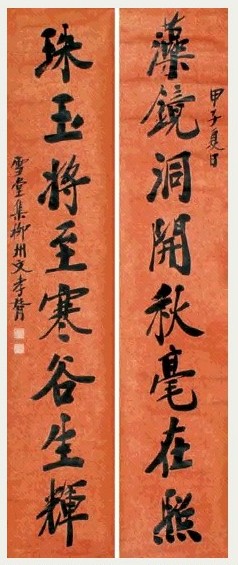 甲子夏日
藻鏡洞開秋毫在照
珠玉將至寒谷生輝
雪堂集柳州文孝胥